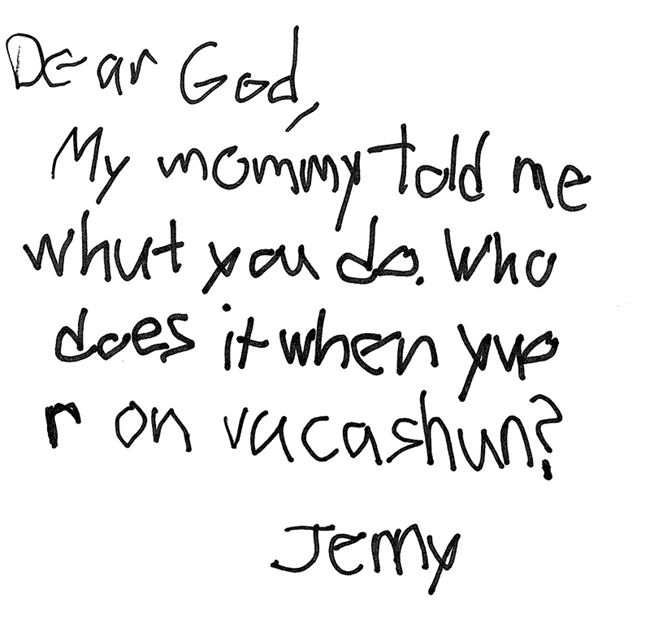 Dear God,
My mommy told me
whut you do. Who
does it when yuo
r on vacashun?
Jemy